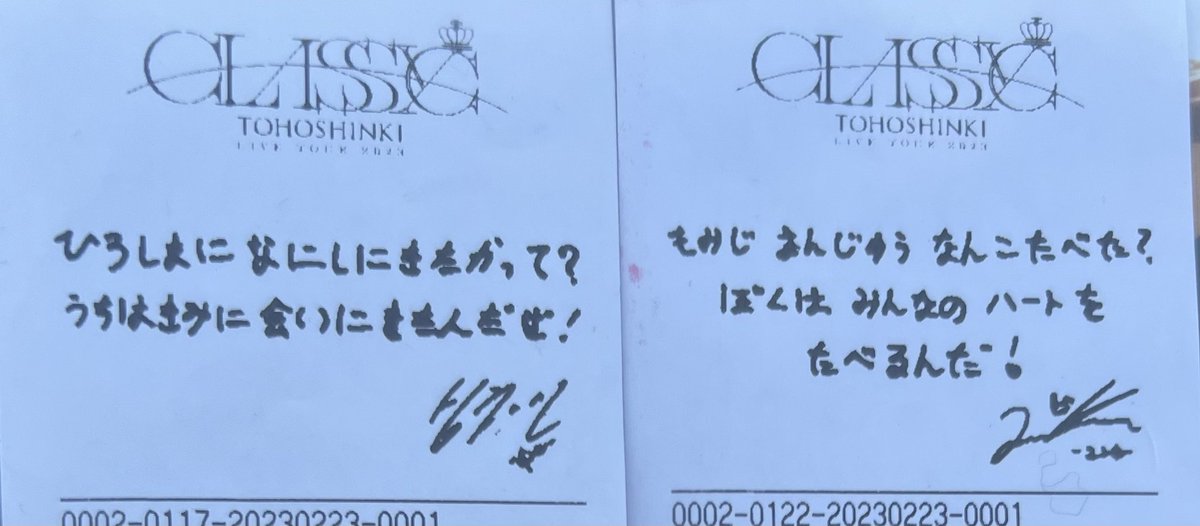 CLASSIC
TOHOSHINKI
LIVE TOUR 2023
ひろしまに なにしにきたかって?
うちはきみに 会いにきたんだぜ!
0002-0117-20230223-0001
CLASSIC
TOHOSHINKI
LIVE TOUR 2023
もみじ まんじゅう なんこたべた?
ぼくは みんなの ハートを
たべるんだ!
0002-0122-20230223-0001